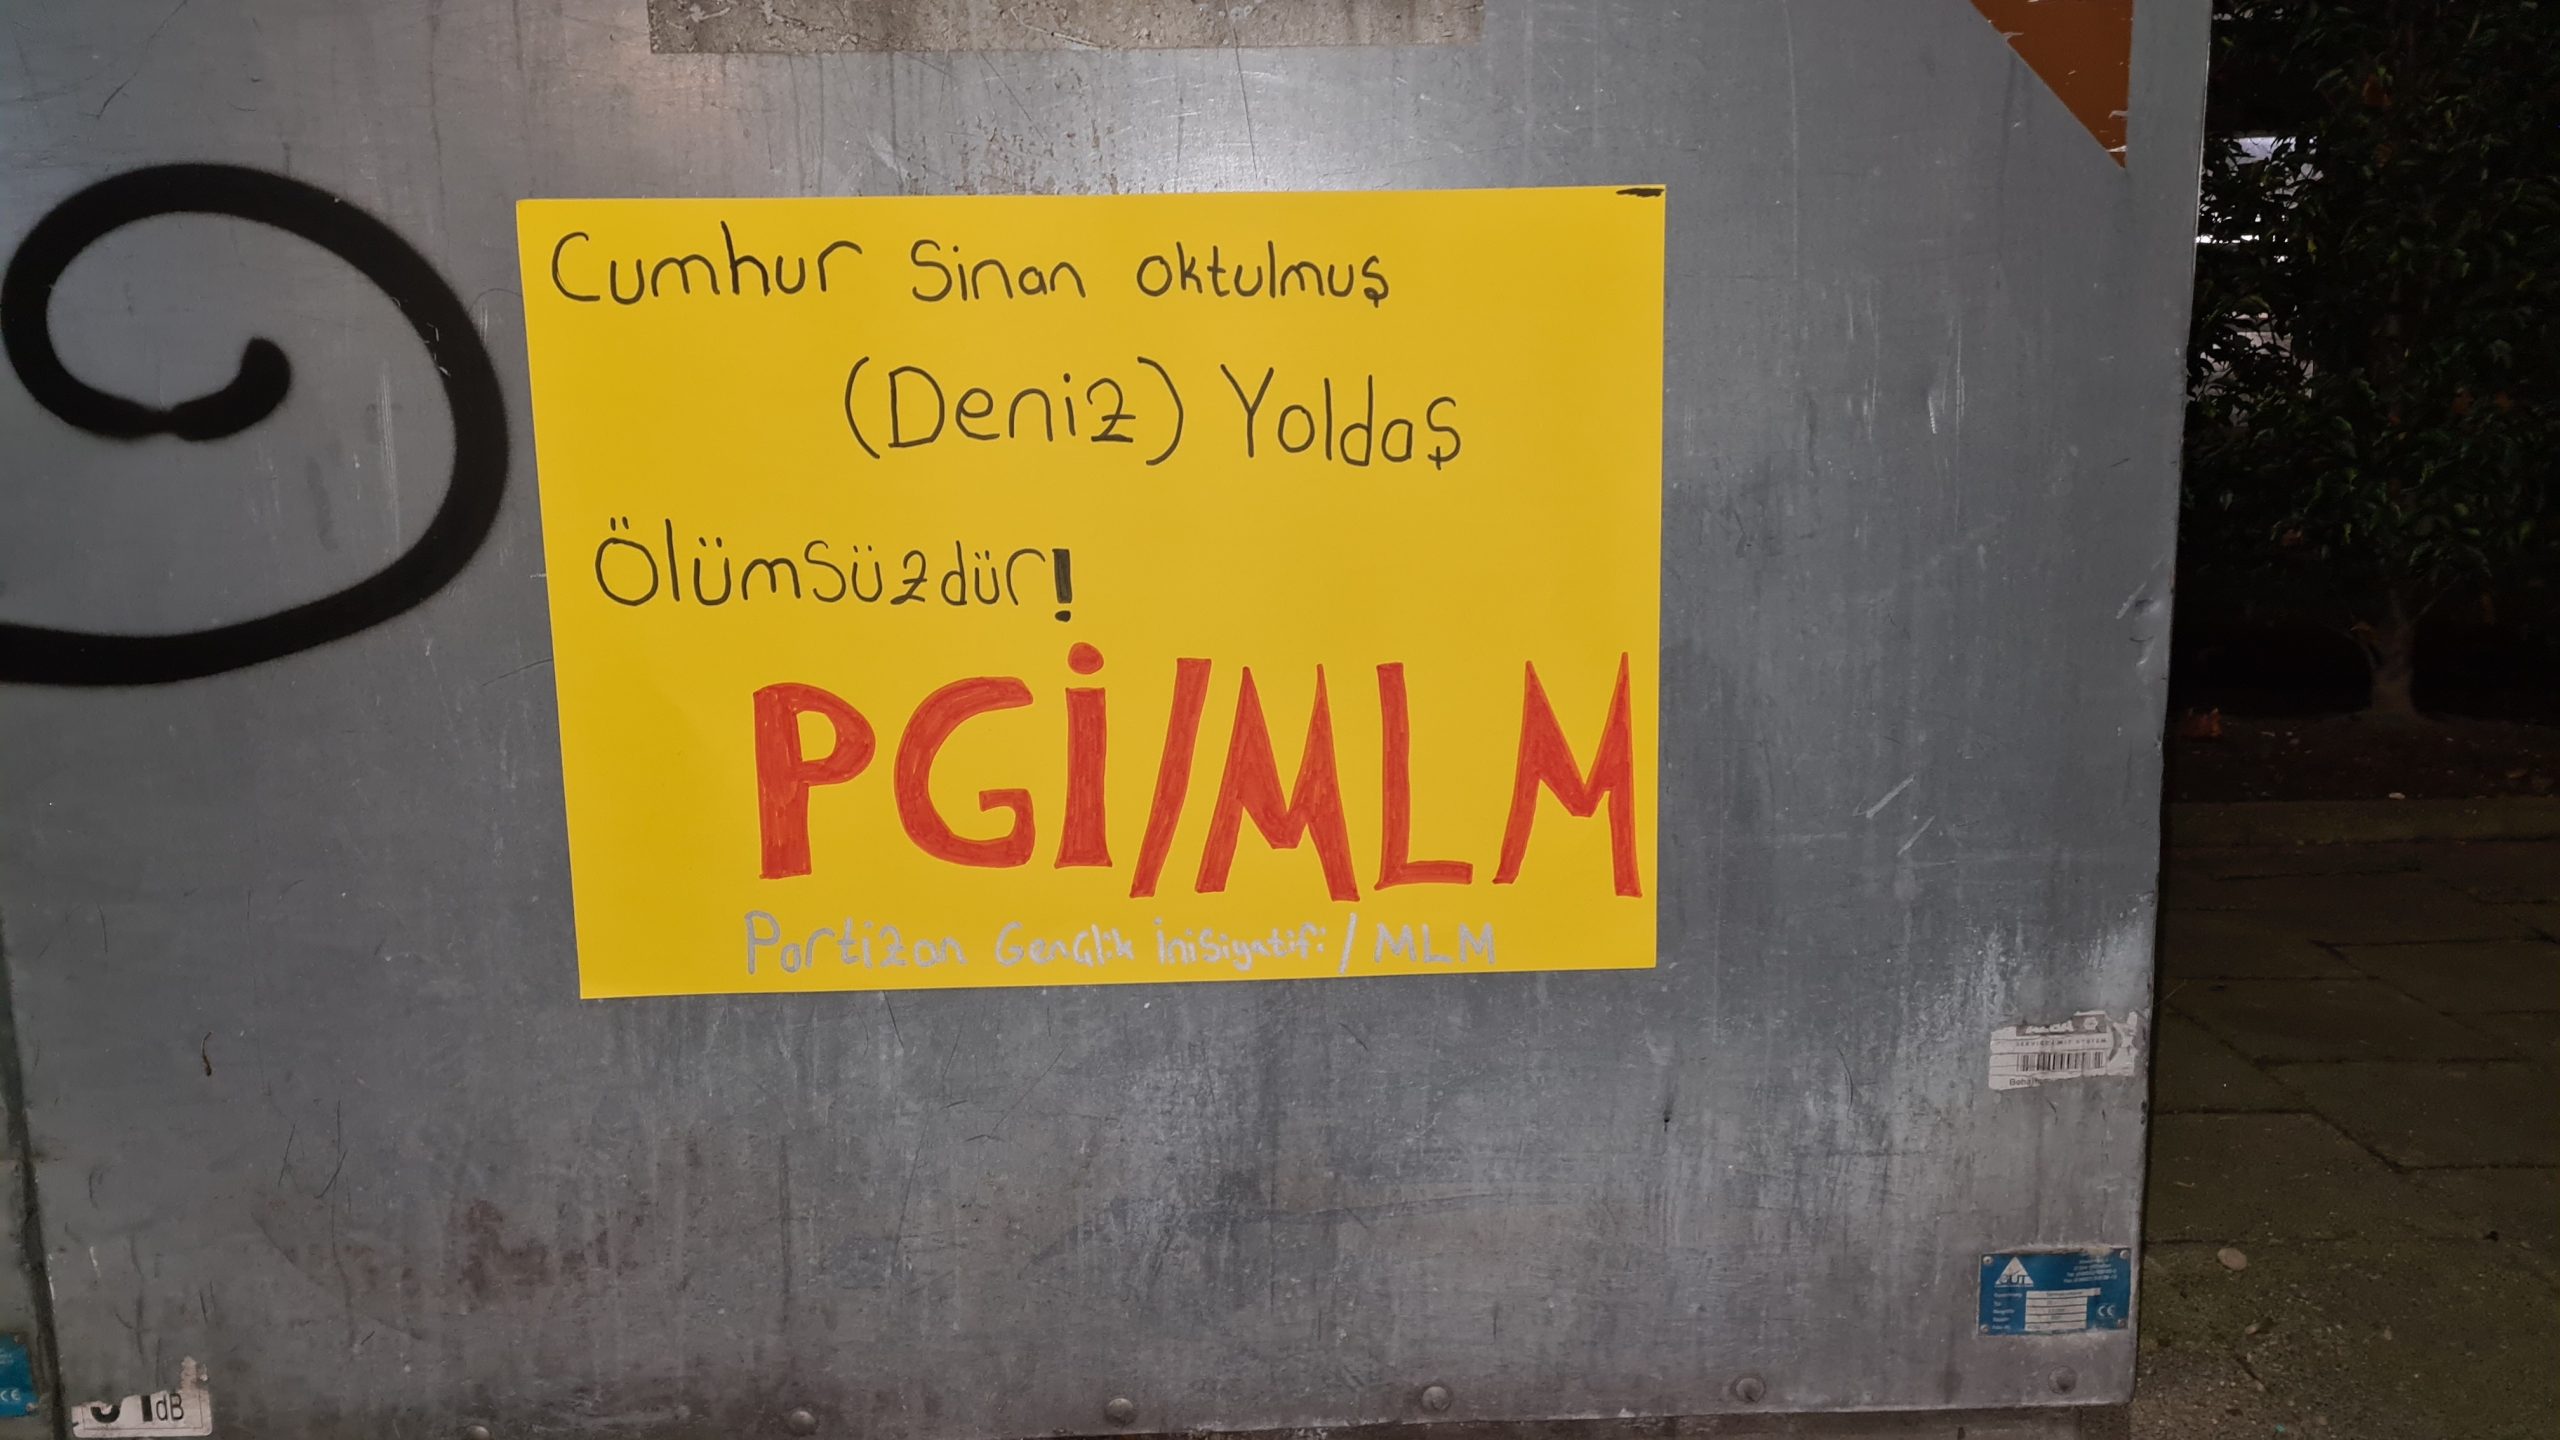 Cumhur Sinan Oktulmuş
(Deniz) Yoldaş
Ölümsüzdür!
PGİ/MLM
Partizan Gençlik İnisiyatifi / MLM
dB
CE